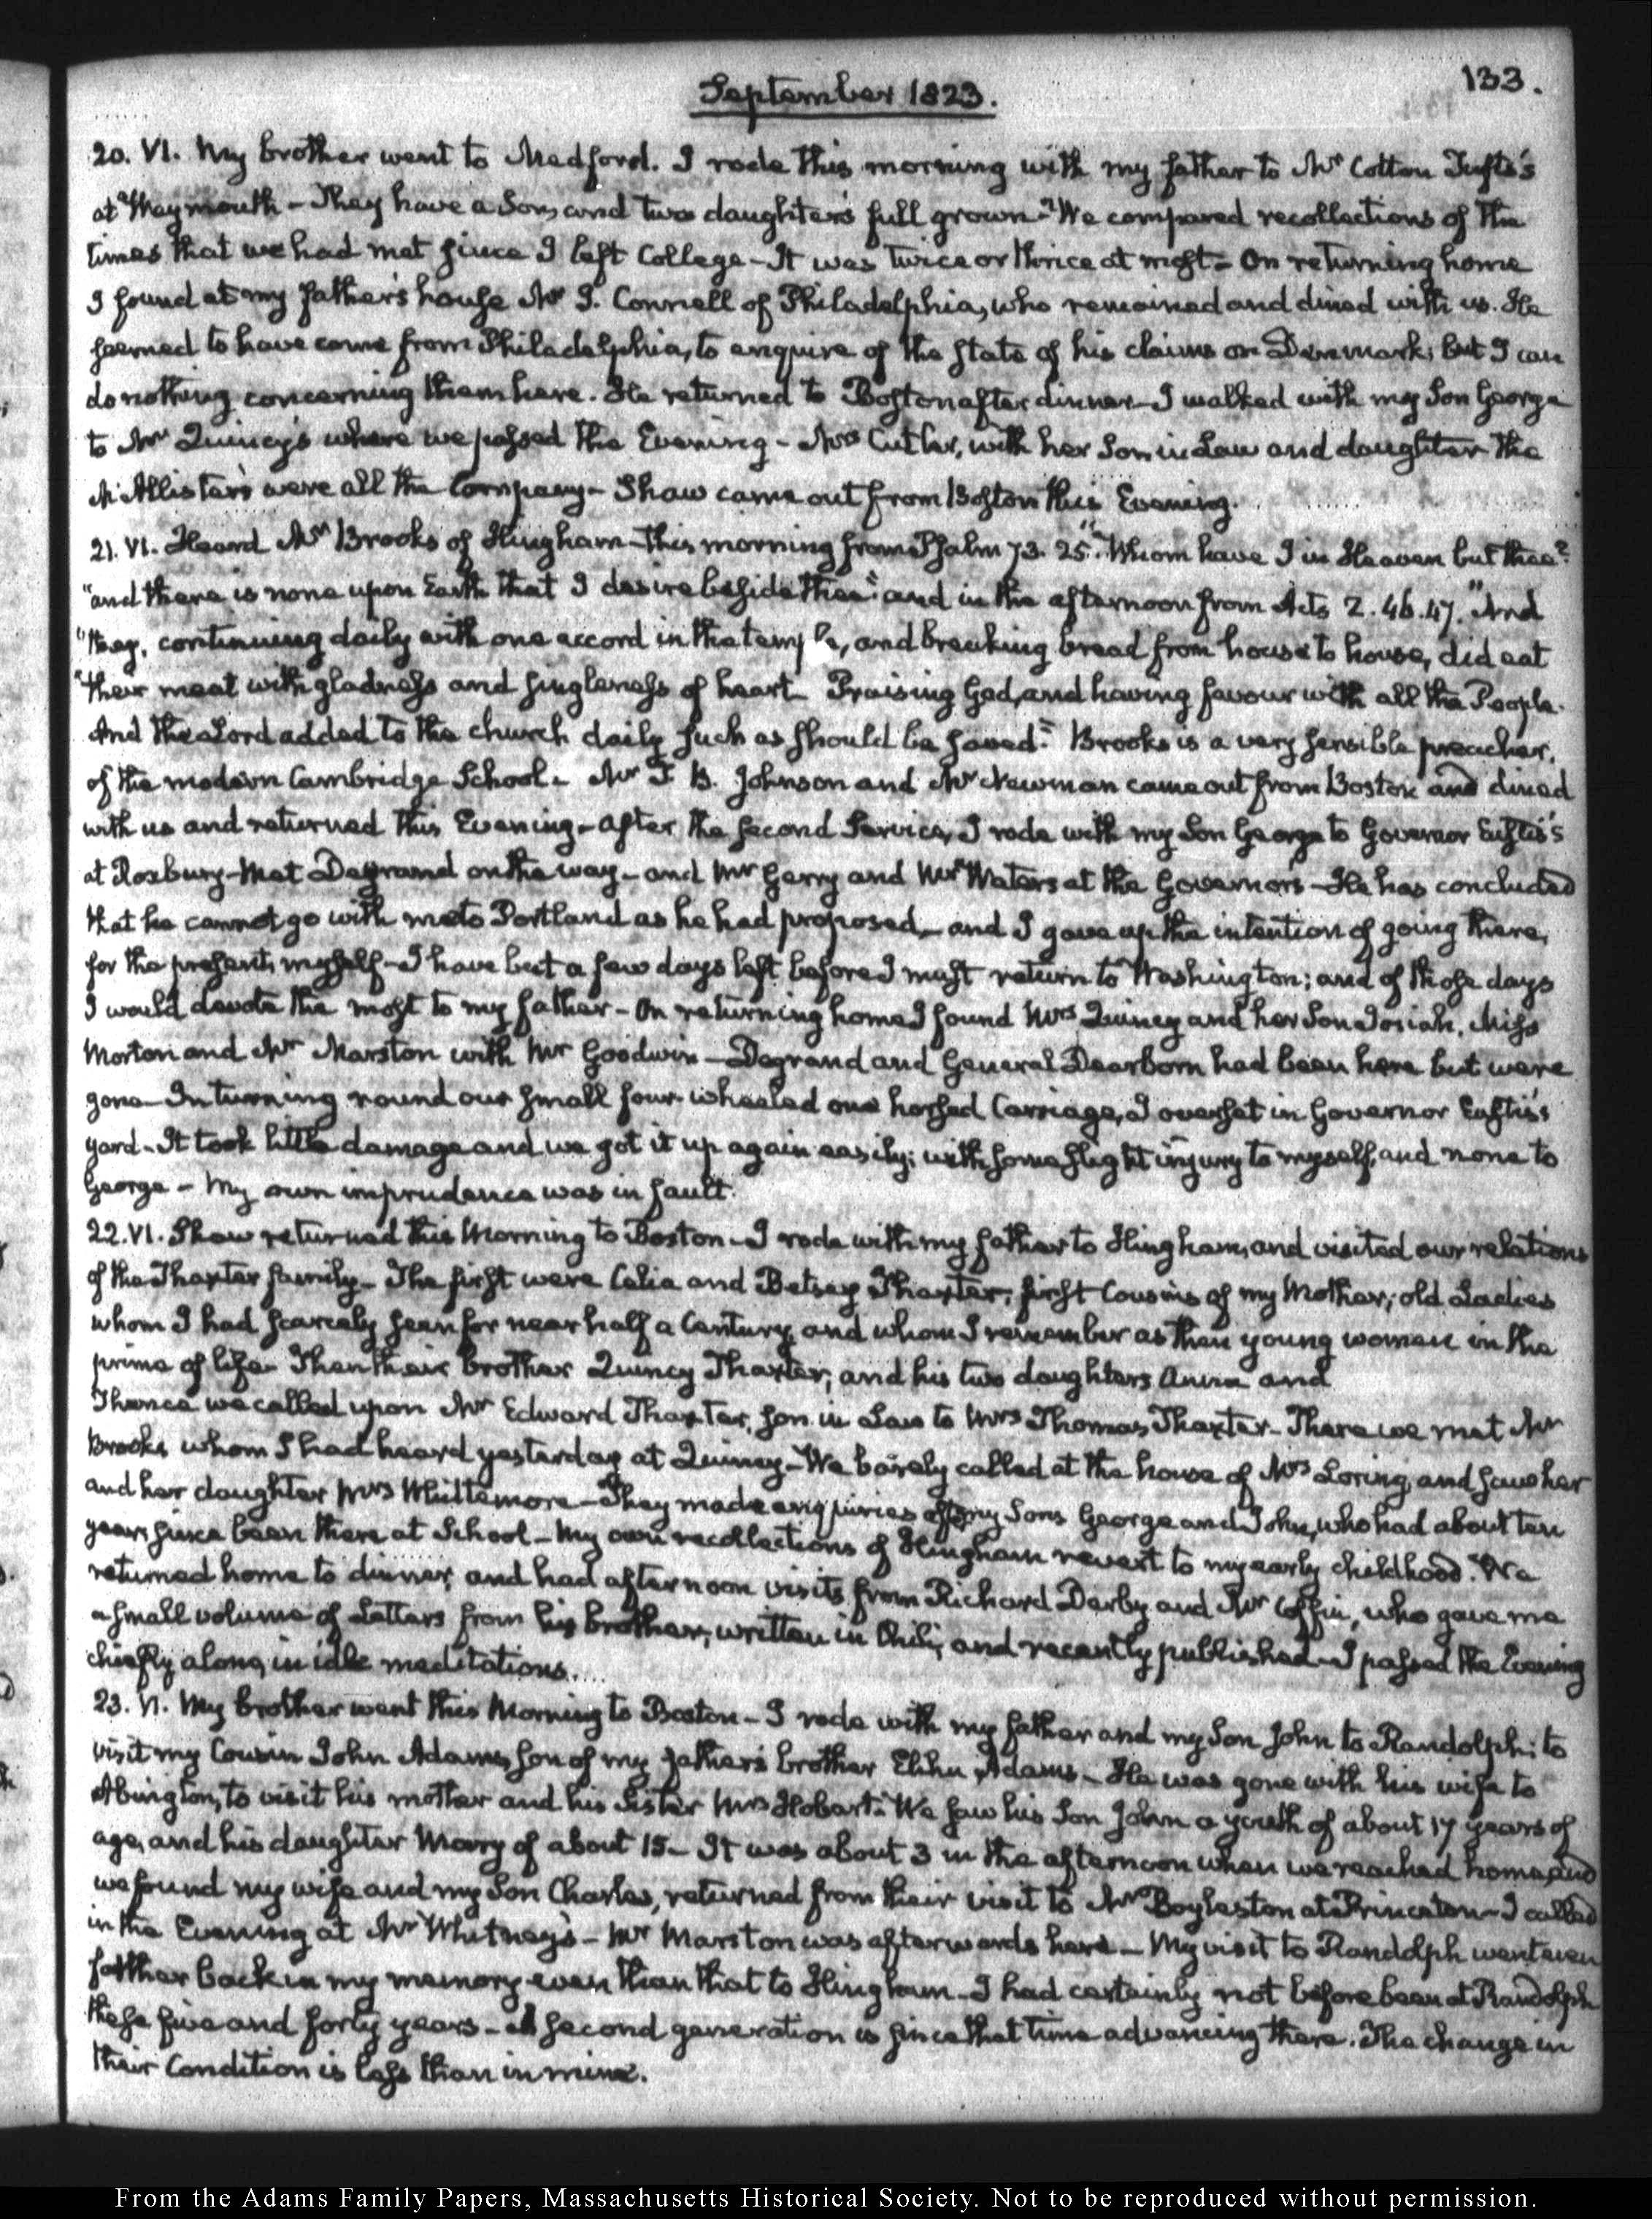 133.
September 1823.
20. VI. My brother went to Medford. I rode this morning with my father to Mr Cotton Tufts's
at Weymouth – They have a Son, and two daughters full grown – We compared recollections of the
times that we had met since I left College – It was twice or thrice at most – On returning home
I found at my father's house Mr J. Connell of Philadelphia, who remained and dined with us. He
seemed to have come from Philadelphia, to enquire of the state of his claims on Denmark; but I can
do nothing concerning them here. He returned to Boston after dinner – I walked with my Son George
to Mr Quincy's where we passed the Evening – Mrs Cutler, with her Son in Law and daughter the
McAllisters were all the Company – Shaw came out from Boston this Evening.
21. VI. Heard Mr Brooks of Hingham – this morning from Psalm 73. 25. "Whom have I in Heaven but thee?
"and there is none upon Earth that I desire beside thee" and in the afternoon from Acts 2. 46. 47. "And
"they, continuing daily with one accord in the temple, and breaking bread from house to house, did eat
"their meat with gladness and singleness of heart – Praising God, and having favour with all the People.
And the Lord added to the church daily such as should be saved." Brooks is a very sensible preacher,
of the modern Cambridge School – Mr J B. Johnson and Mr Newman came out from Boston and dined
with us and returned this Evening – After the second Service, I rode with my Son George to Governor Eustis's
at Roxbury – Met Degrand on the way – and Mr Gerry and Mr Waters at the Governor's – He has concluded
that he cannot go with me to Portland as he had proposed, – and I gave up the intention of going there,
for the present, myself – I have but a few days left before I must return to Washington; and of those days
I would devote the most to my father – On returning home I found Mrs Quincy and her Son Josiah, Miss
Morton and Mr Marston with Mr Goodwin – Degrand and General Dearborn had been here but were
gone – In turning round our small four wheeled one horsed Carriage, I overset in Governor Eustis's
yard – It took little damage and we got it up again easily; with some slight injury to myself, and none to
George – My own imprudence was in fault.
22. VI. Shaw returned this Morning to Boston – I rode with my father to Hingham, and visited our relations
of the Thaxter family – The first were Celia and Betsey Thaxter, first Cousins of my Mother; old Ladies
whom I had scarcely seen for near half a Century, and whom I remember as then young women in the
prime of life – Then their brother Quincy Thaxter, and his two daughters Anna and
Thence we called upon Mr Edward Thaxter, Son in Law to Mrs Thomas Thaxter – There we met Mr
Brooks whom I had heard yesterday at Quincy – We barely called at the house of Mrs Loring, and saw her
and her daughter Mrs Whittemore – They made enquiries of my Sons George and John, who had about ten
years since been there at School – My own recollections of Hingham revert to my early childhood. We
returned home to dinner, and had afternoon visits from Richard Derby and Mr Coffin, who gave me
a small volume of Letters from his brother, written in Chili, and recently published – I passed the Evening
chiefly alone, in idle meditations....
23. VI. My brother went this Morning to Boston – I rode with my father and my Son John to Randolph; to
visit my Cousin John Adams, Son of my father's brother Elihu Adams – He was gone with his wife to
Abington, to visit his mother and his Sister Mrs Hobart. We saw his Son John a youth of about 17 years of
age, and his daughter Mary of about 15 – It was about 3 in the afternoon when we reached home, and
we found my wife and my Son Charles, returned from their visit to Mr Boylston at Princeton – I called
in the Evening at Mr Whitney's – Mr Marston was afterwards here – My visit to Randolph went even
farther back in my memory even than that to Hingham – I had certainly not before been at Randolph
these five and forty years – A second generation is since that time advancing there. The change in
their Condition is less than in mine.
From the Adams Family Papers, Massachusetts Historical Society. Not to be reproduced without permission.